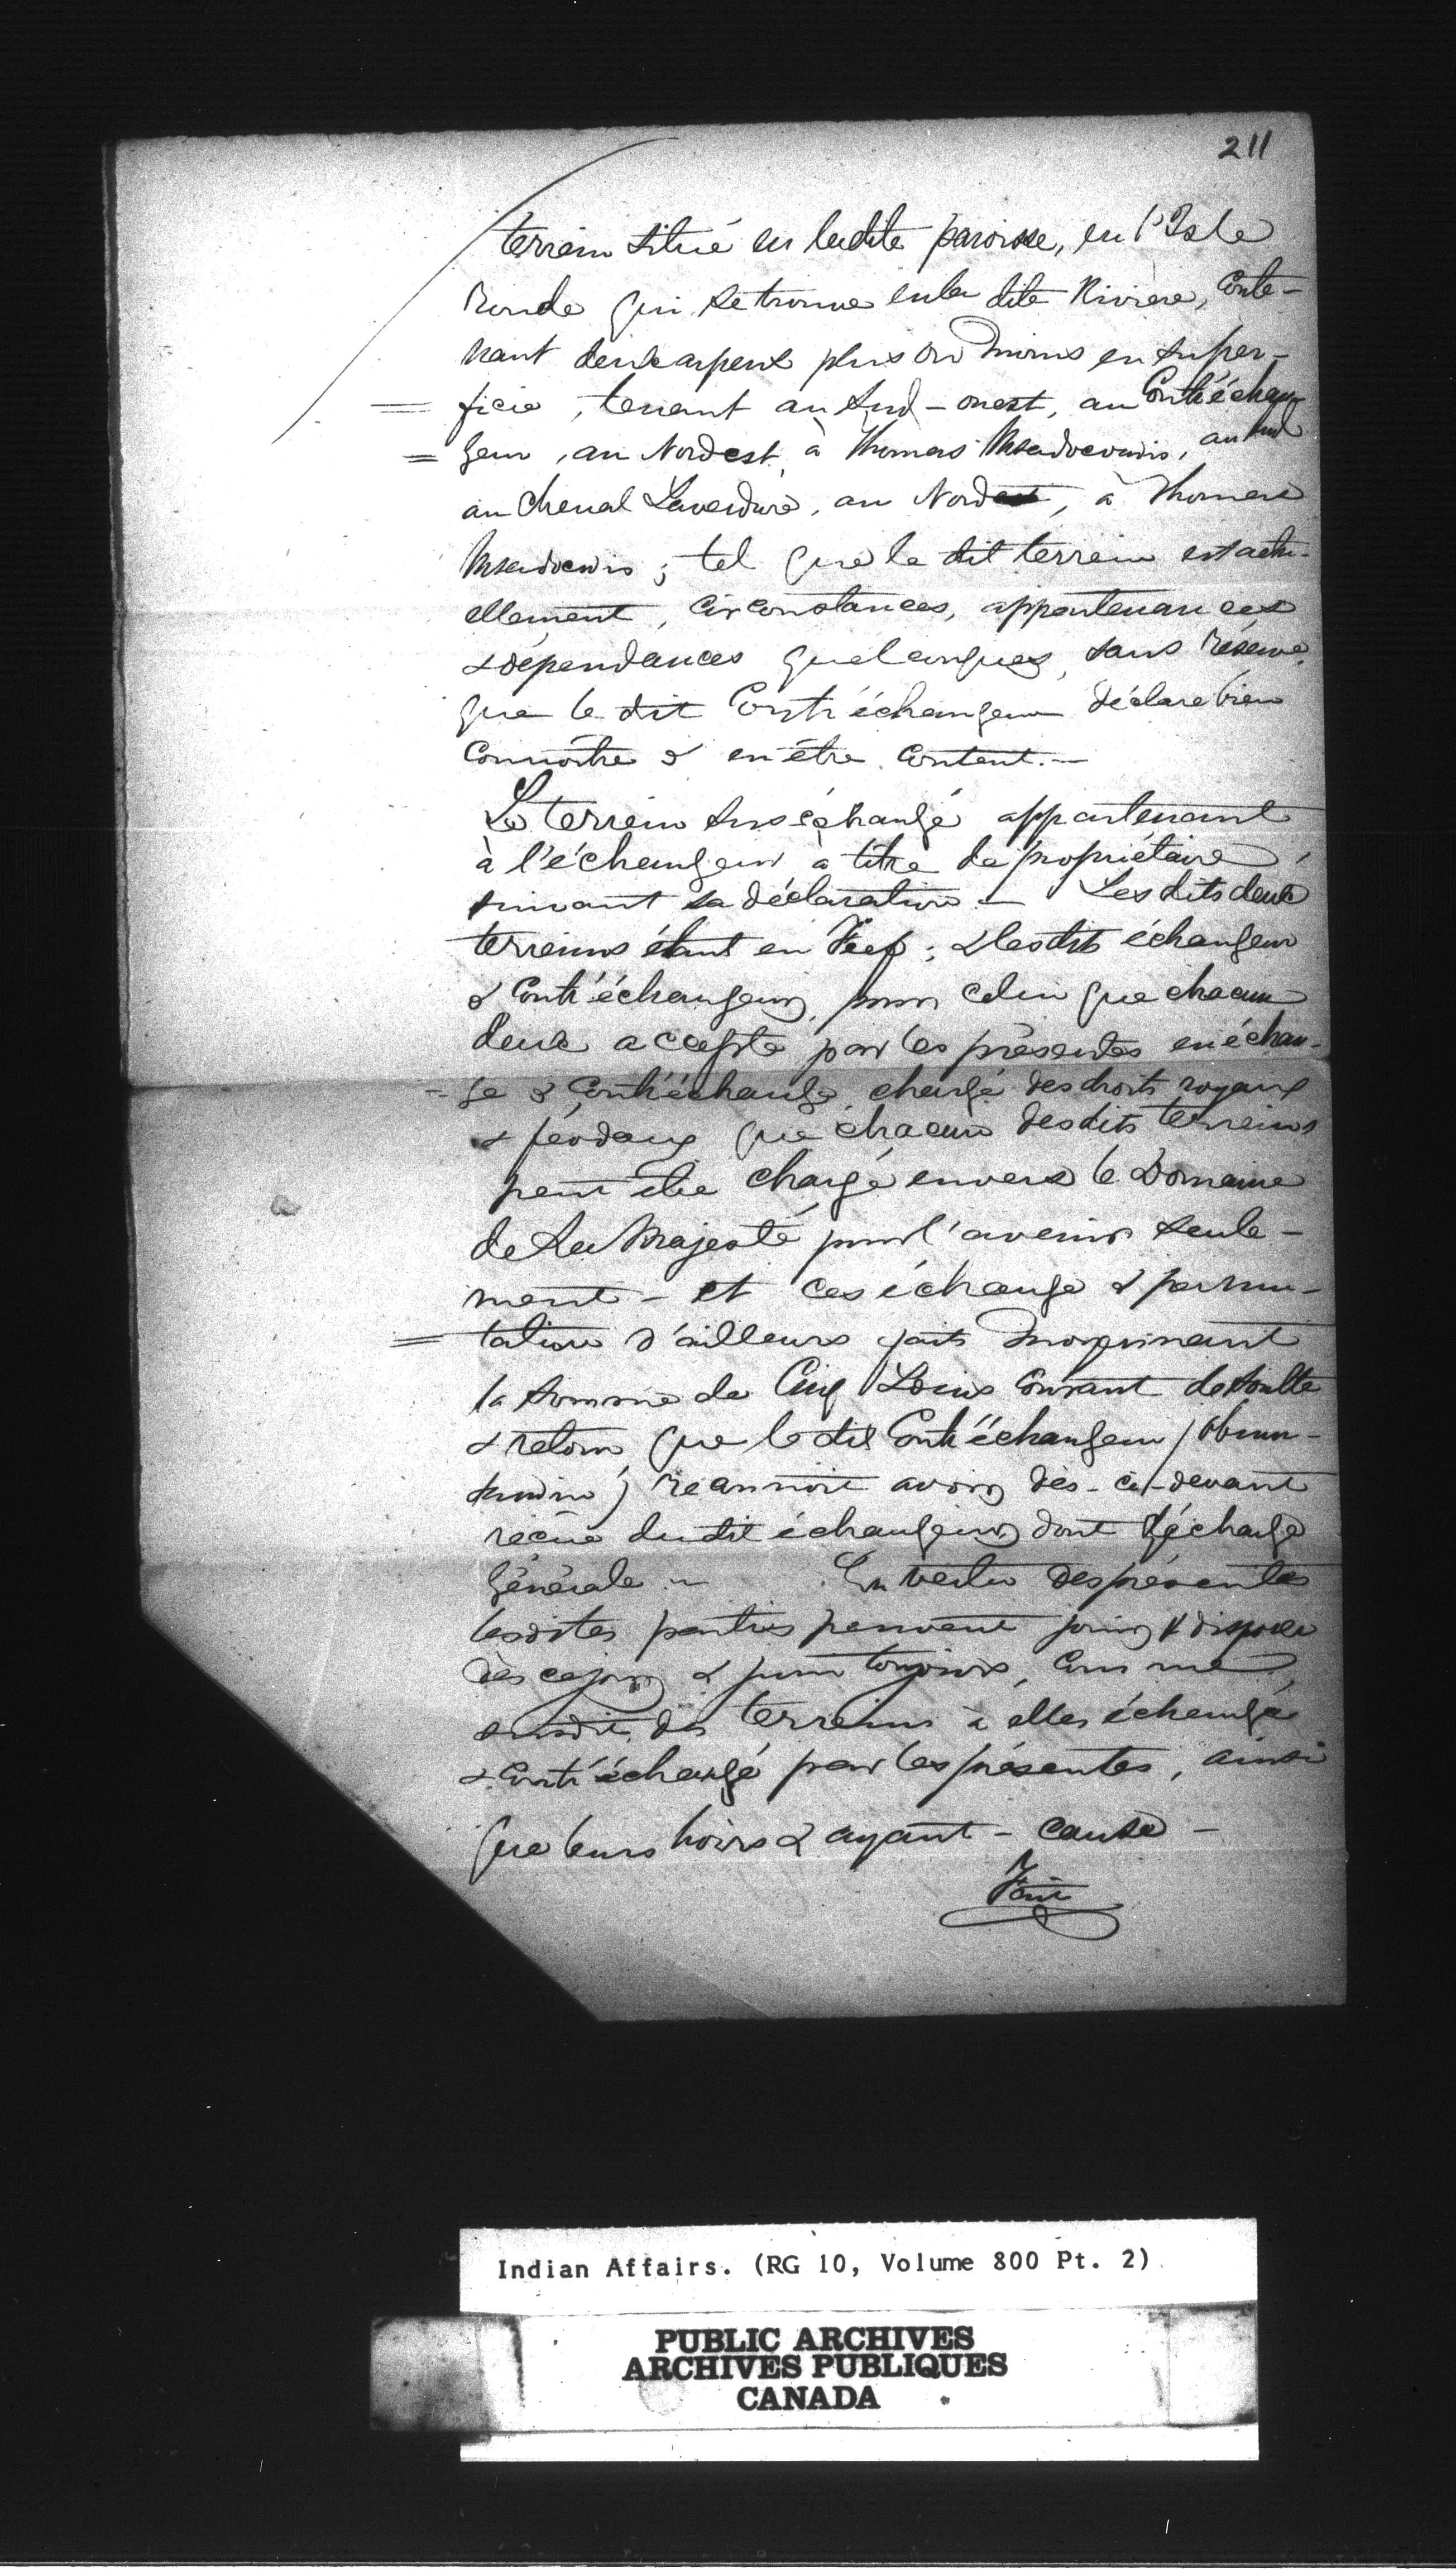 211
terrein situé en ladite paroisse, en l'Isle
Ronde qui se trouve en la dite Rivière, Conte-
nant deux arpens plus ou moins en super-
ficie, tenant au Sud-ouest, au Contr'échan-
geur, au Nordest à Thomas Msadocouis, au sud
au Chenal Laverdure, au Nord, à Thomas
; tel que le dit terrein est actu-
ellement, Circonstances, appartenances
& dépendances quelconques, sans réserve,
que le dit Contr'échangeur déclare bien
Connoître & en être Content.-
Le terrein sus échangé appartenant
à l'échangeur à titre de propriétaire,
suivant sa déclaration - Les dits deux
terreins étant en Fief; & lesdits échangeur
& Contr'échangeur, pour celui que chacun
deux accepte par les présentes en échan-
ge & Contr'échange, chargé des droits royaux
& féodaux que chacun desdits terreins
peut être chargé envers le Domaine
de Sa Majesté, pour l'avenir seule-
ment - et ces échange & permu-
tation d'ailleurs faits moyennant
la somme de Cinq Louis Courant de soulte
& retour que le dit Contr'échangeur
reconnoit avoir dès-ci-devant
reçue dudit échangeur dont décharge
Générale - En vertu des présentes
lesdites parties peuvent jouir & disposer
dès ce jour & pour toujours, Comme
susdit, des terreins à elles échangé
& Contr'échangé par les présentes, ainsi
que leurs hoirs & ayant-cause -
Fait
Indian Affairs. (RG 10, Volume 800 Pt. 2)
PUBLIC ARCHIVES
ARCHIVES PUBLIQUES
CANADA